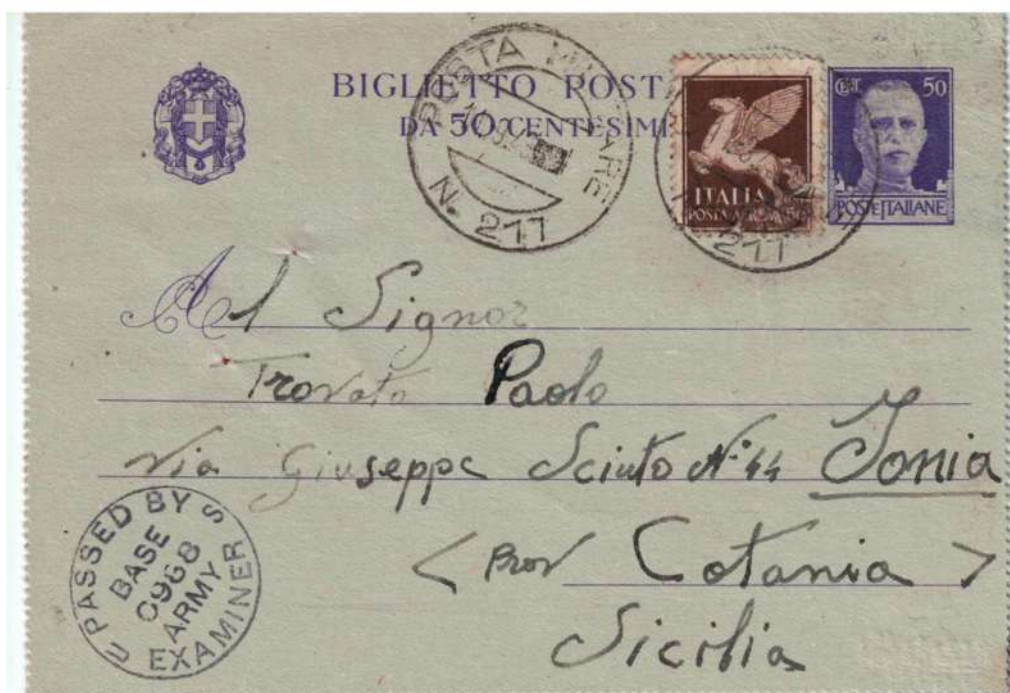 BIGLIETTO POSTA
DA 50 CENTESIMI
POSTA MILITARE
N. 211
CENT. 50
POSTE ITALIANE
ITALIA
POSTA AEREA
211
Al Signor
Trovato Paolo
Via Giuseppe Sciuto N° 44 Jonia
< Prov Catania >
Sicilia
U S
PASSED BY
BASE
0968
ARMY
EXAMINER